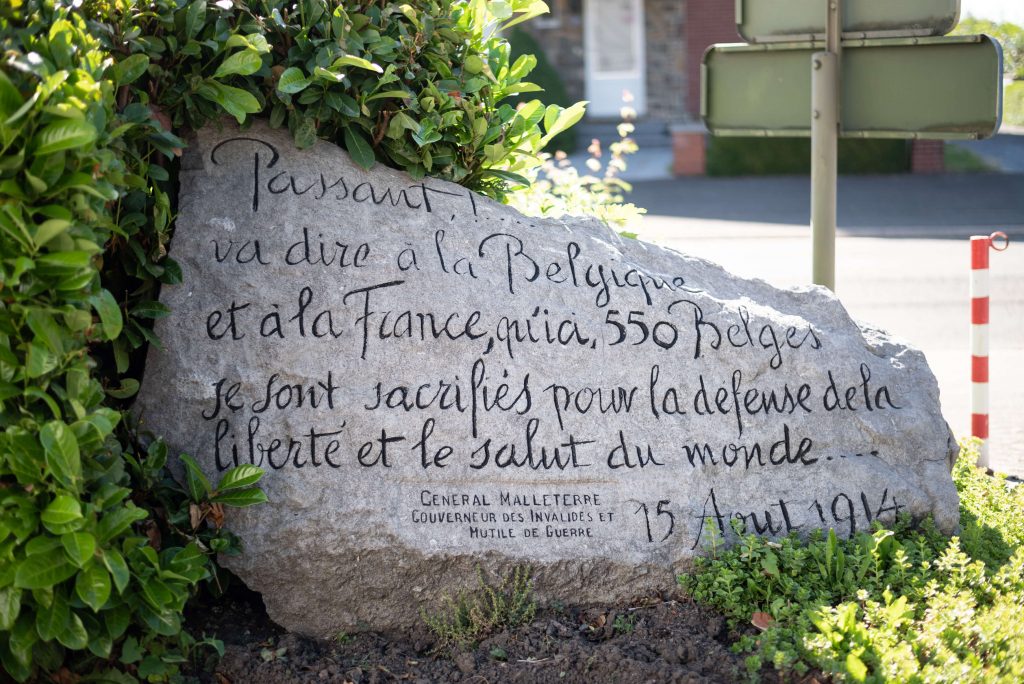 Passant,!....
va dire à la Belgique
et à la France, qu'ici, 550 Belges
se sont sacrifiés pour la défense de la
liberté et le salut du monde....
GENERAL MALLETERRE
GOUVERNEUR DES INVALIDES ET
MUTILE DE GUERRE
15 Août 1914